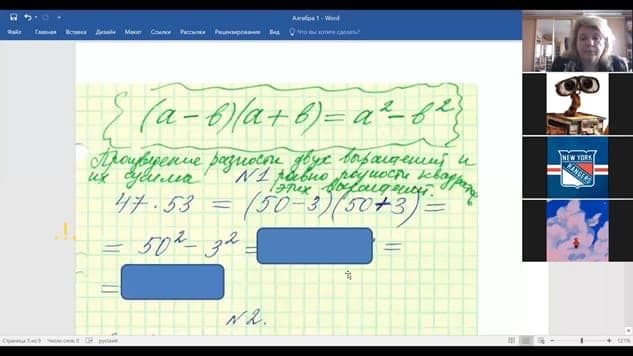 Алгебра 1 - Word
Файл Главная Вставка Дизайн Макет Ссылки Рассылки Рецензирование Вид Что вы хотите сделать?
(a-b)(a+b)=a²-b²
Произведение разности двух выражений и
их суммы равно разности квадратов
этих выражений.
N1
47·53 = (50-3)(50+3) =
= 50² - 3² = =
=
N2.
NEW YORK
RANGERS
Страница 5 из 9 Число слов: 0 русский
121%